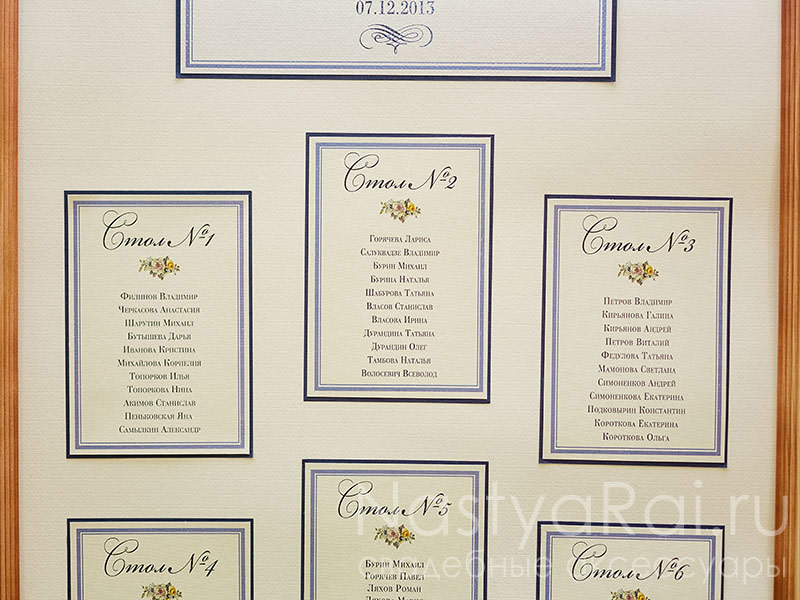 07.12.2013
Стол №1
Филинов Владимир
Черкасова Анастасия
Шарутин Михаил
Бутышева Дарья
Иванова Кристина
Михайлова Корнелия
Топорков Илья
Топоркова Нина
Акимов Станислав
Пеньковская Яна
Самылкин Александр
Стол №2
Горячева Лариса
Салуквадзе Владимир
Бурин Михаил
Бурина Наталья
Шабурова Татьяна
Власов Станислав
Власова Ирина
Дурандина Татьяна
Дурандин Олег
Тамбова Наталья
Волосевич Всеволод
Стол №3
Петров Владимир
Кирьянова Галина
Кирьянов Андрей
Петров Виталий
Федулова Татьяна
Мамонова Светлана
Симоненков Андрей
Симоненкова Екатерина
Подковырин Константин
Короткова Екатерина
Короткова Ольга
Стол №4
Стол №5
Бурин Михаил
Горячев Павел
Ляхов Роман
Стол №6
NastyaRai.ru
свадебные аксессуары